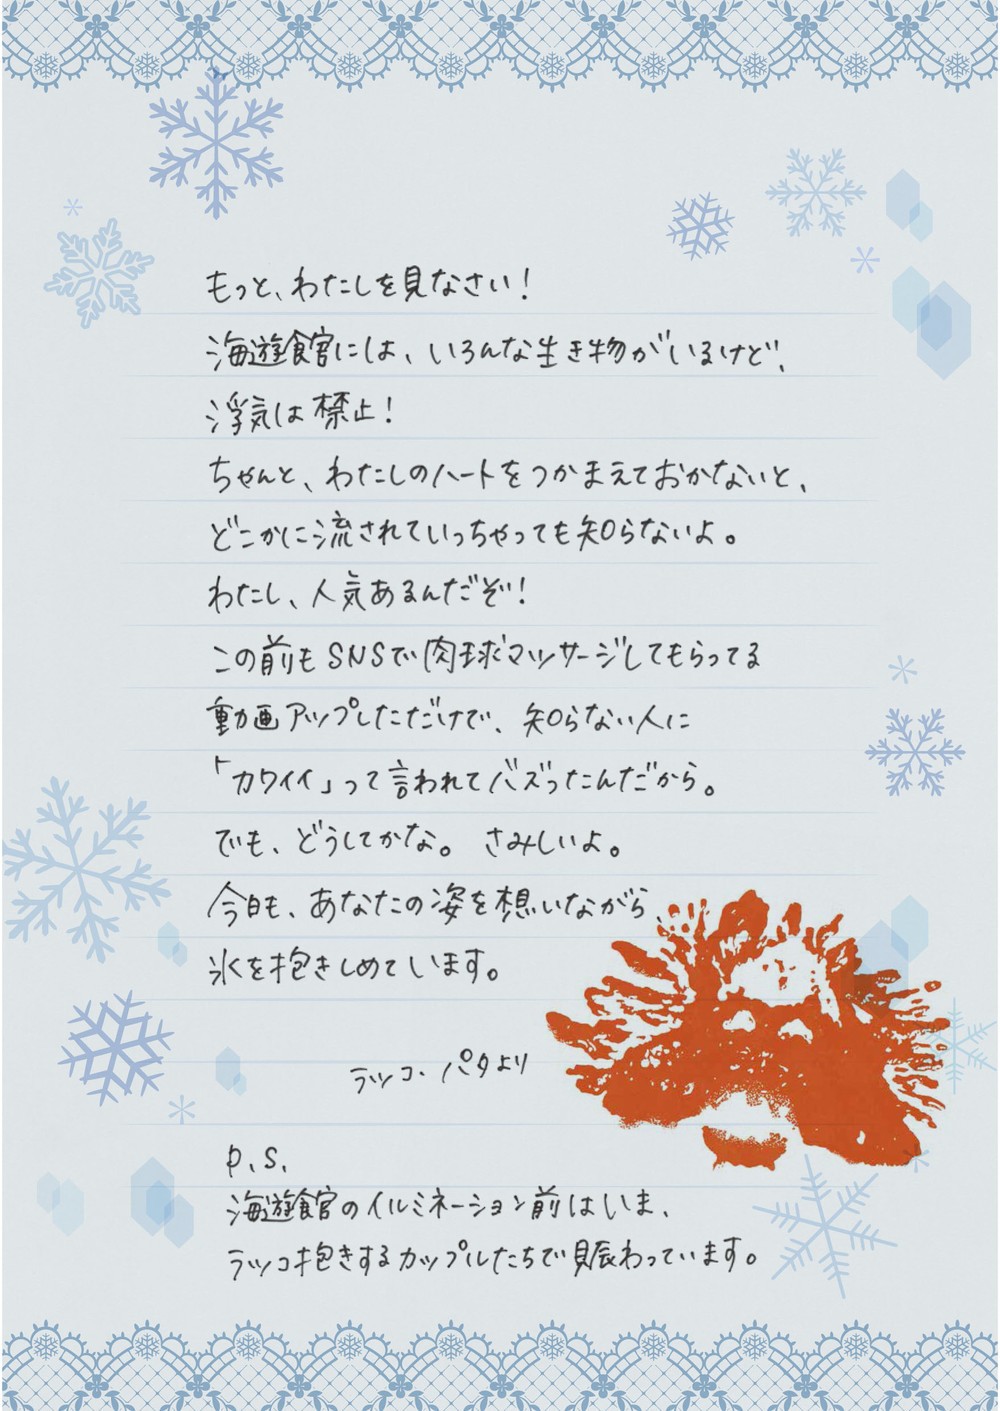 もっと、わたしを見なさい!
海遊館には、いろんな生き物がいるけど、
浮気は禁止!
ちゃんと、わたしのハートをつかまえておかないと、
どこかに流されていっちゃっても知らないよ。
わたし、人気あるんだぞ!
この前もSNSで肉球マッサージしてもらってる
動画アップしただけで、知らない人に
「カワイイ」って言われてバズったんだから。
でも、どうしてかな。 さみしいよ。
今日も、あなたの姿を想いながら、
氷を抱きしめています。
ラッコ・パタより
P.S.
海遊館のイルミネーション前はいま、
ラッコ抱きするカップルたちで賑わっています。